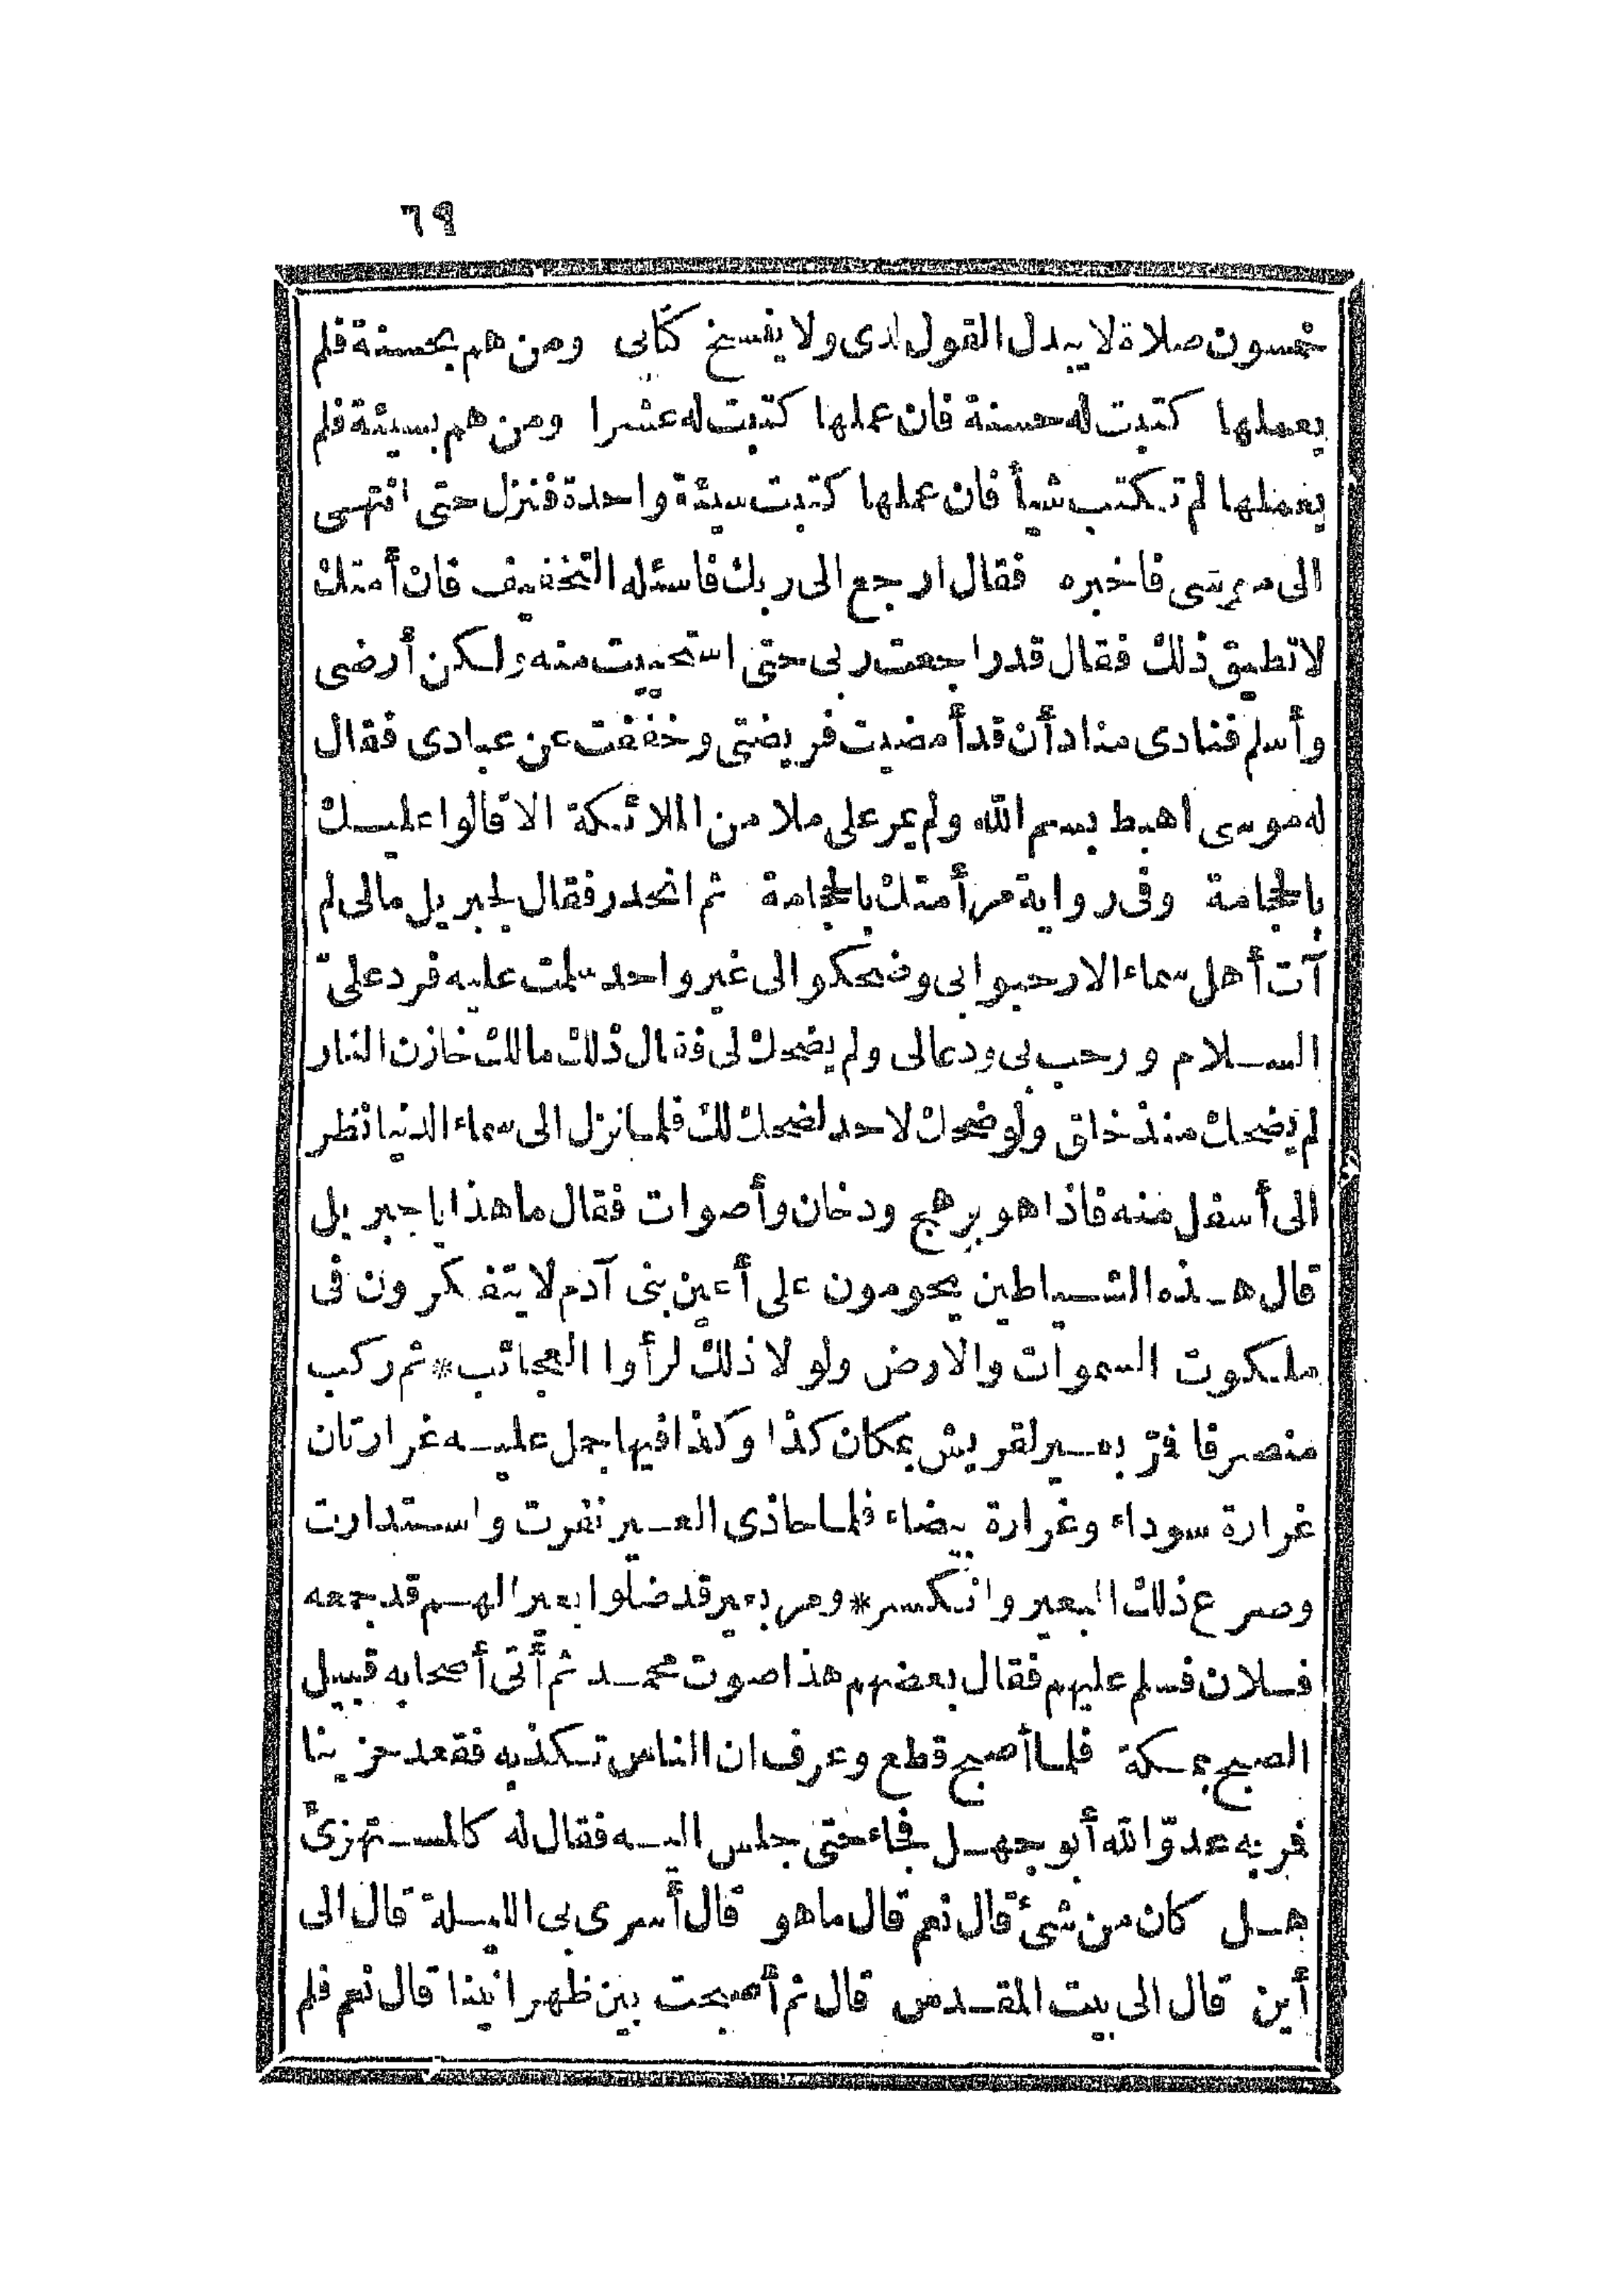 ٦٩
خمسون صلاة لا يبدل القول لدى ولا ينسخ كتابى ومن هم بحسنة فلم
يعملها كتبت له حسنة فان عملها كتبت له عشرا ومن هم بسيئة فلم
يعملها لم تكتب شيأ فان عملها كتبت سيئة واحدة فنزل حتى انتهى
الى موسى فاخبره فقال ارجع الى ربك فاسئله التخفيف فان أمتك
لا تطيق ذلك فقال قد راجعت ربى حتى استحييت منه ولكن أرضى
وأسلم فنادى مناد أن قد أمضيت فريضتى وخففت عن عبادى فقال
له موسى اهبط بسم الله ولم يمر على ملا من الملائكة الا قالوا عليك
بالحجامة وفى رواية مر أمتك بالحجامة ثم انحدر فقال لجبريل مالى لم
آت أهل سماء الا رحبوا بى وضحكوا الى غير واحد سلمت عليه فرد علىّ
السلام ورحب بى ودعا لى ولم يضحك لى فقال ذلك مالك خازن النار
لم يضحك منذ خلق ولو ضحك لاحد لضحك لك فلما نزل الى سماء الدنيا نظر
الى أسفل منه فاذا هو برهج ودخان وأصوات فقال ما هذا يا جبريل
قال هذه الشياطين يحومون على أعين بنى آدم لا يتفكرون فى
ملكوت السموات والارض ولولا ذلك لرأوا العجائب * ثم ركب
منصرفا فمرّ بعير لقريش بمكان كذا وكذا فيها جمل عليه غرارتان
غرارة سوداء وغرارة بيضاء فلما حاذى العير نفرت واستدارت
وصرع ذلك البعير وانكسر * ومر بعير قد ضلوا بعيرا لهم قد جمعه
فلان فسلم عليهم فقال بعضهم هذا صوت محمد ثم أتى أصحابه قبيل
الصبح بمكة فلما أصبح قطع وعرف ان الناس تكذبه فقعد حزينا
فمر به عدوّ الله أبو جهل فجاء حتى جلس اليه فقال له كالمستهزئ
هل كان من شئ قال نعم قال ما هو قال أسرى بى الليلة قال الى
أين قال الى بيت المقدس قال ثم أصبحت بين ظهرانينا قال نعم فلم